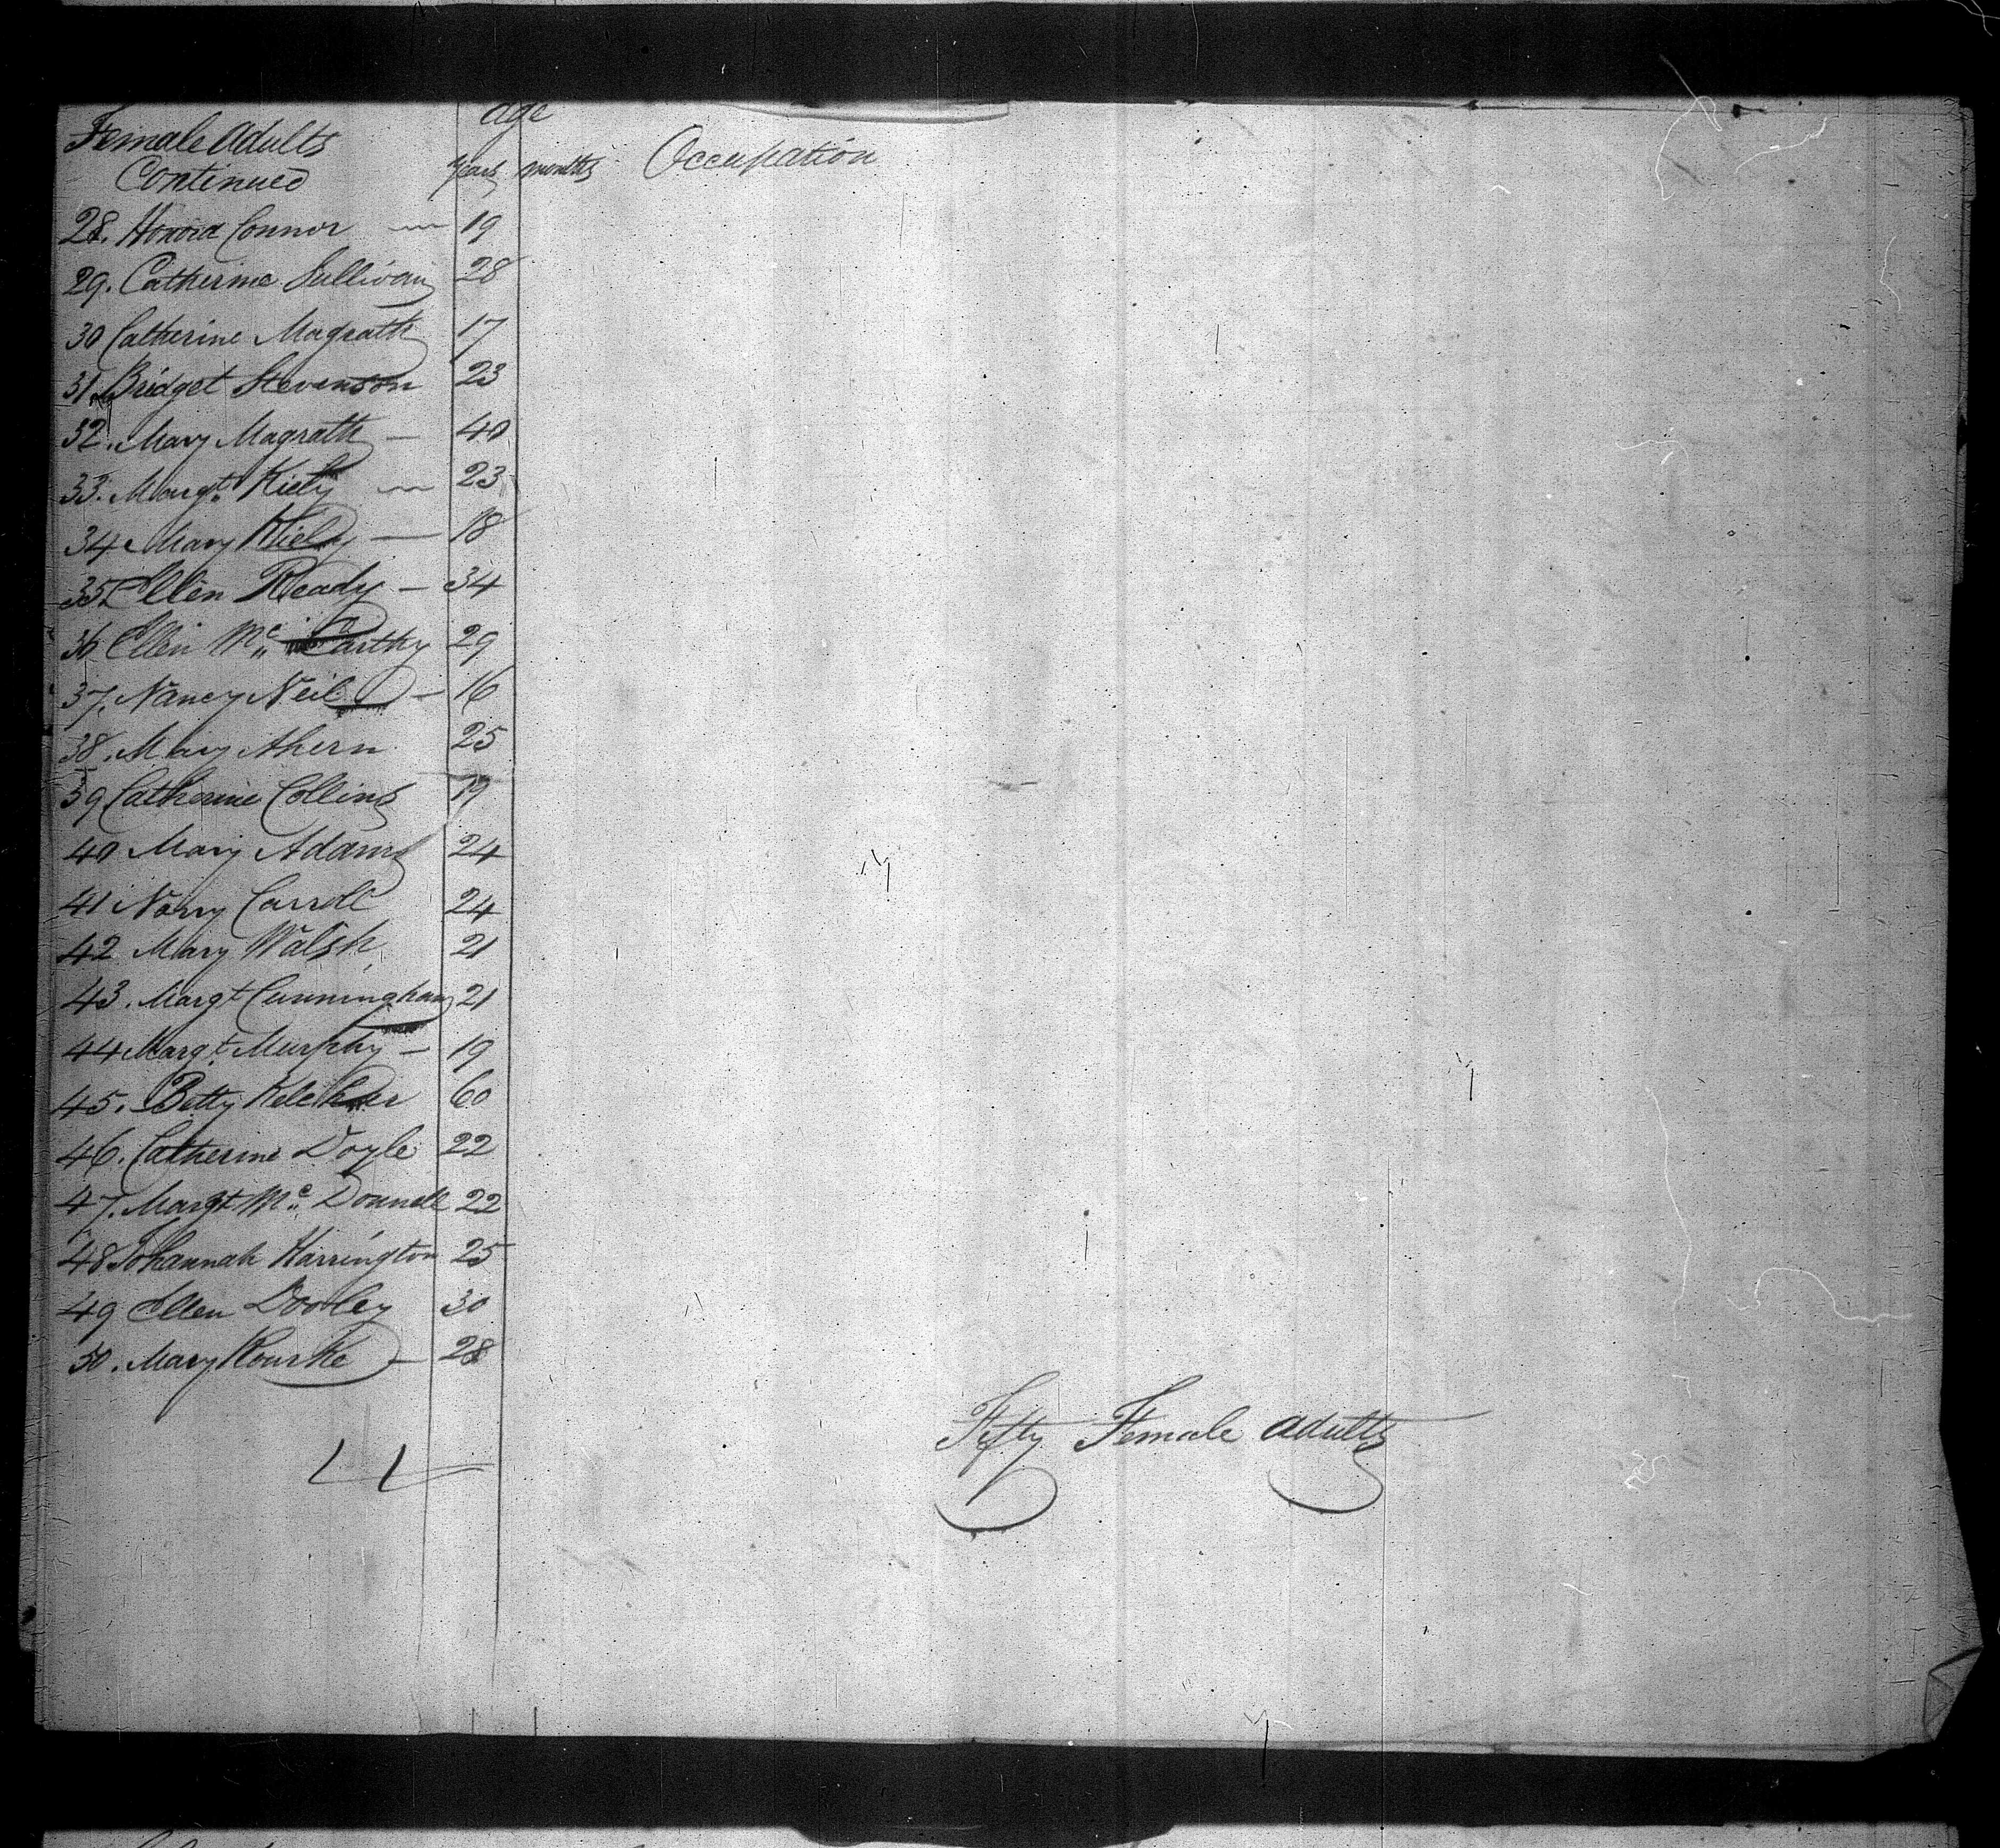 Female Adults age
Continued Years months Occupation
28. Honora Connor 19
29. Catherine Sullivan 28
30 Catherine Magrath 17
31. Bridget Stevenson 23
32. Mary Magrath - 40
33. Margt. Kiely 23
34 Mary Kiely - 18
35 Ellen Ready - 34
36 Ellen Mc Carthy 29
37. Nancy Neil - 16
38. Mary Ahern 25
39 Catherine Collins 19
40 Mary Adams 24
41 Norry Carroll 24
42 Mary Walsh 21
43. Margt Cunningham 21
44 Margt. Murphy - 19
45. Betty Kelleher 60
46. Catherine Doyle 22
47. Margt Mc Donnell 22
48 Johannah Harrington 25
49 Ellen Dooley 30
50. Mary Rourke - 28
Fifty Female adults